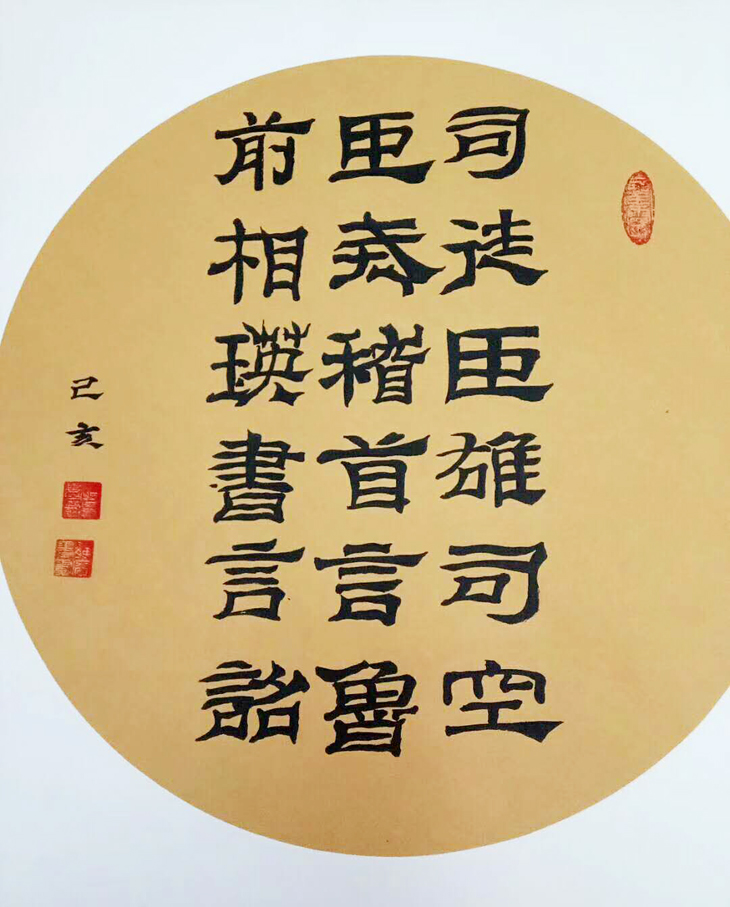 司徒臣雄司空
臣戒稽首言魯
前相瑛書言詔
己亥